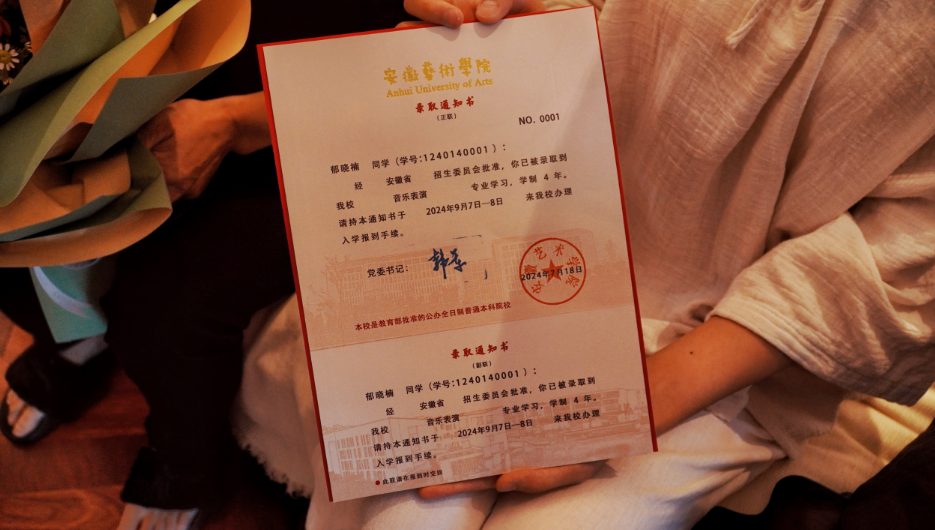 安徽藝術學院
Anhui University of Arts
录取通知书
（正联）
NO. 0001
郁晓楠 同学（学号:1240140001）：
经 安徽省 招生委员会批准，你已被录取到
我校 音乐表演 专业学习，学制 4 年。
请持本通知书于 2024年9月7日—8日 来我校办理
入学报到手续。
党委书记：
安徽艺术学院
2024年7月18日
本校是教育部批准的公办全日制普通本科院校
录取通知书
（副联）
郁晓楠 同学（学号:1240140001）：
经 安徽省 招生委员会批准，你已被录取到
我校 音乐表演 专业学习，学制 4 年。
请持本通知书于 2024年9月7日—8日 来我校办理
入学报到手续。
●此联请在报到时交验